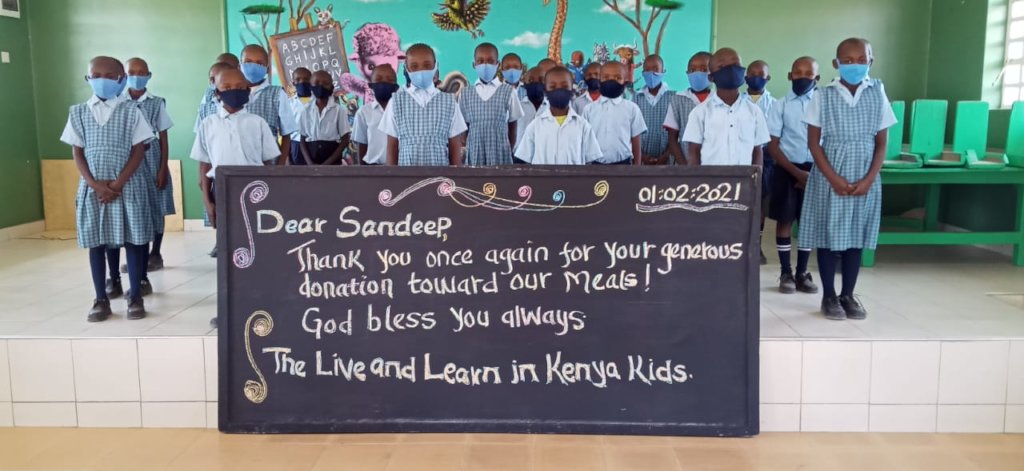 ABCDEF
GHIJKL
01:02:2021
Dear Sandeep,
Thank you once again for your generous
donation toward our Meals!
God bless you always
The Live and Learn in Kenya Kids.